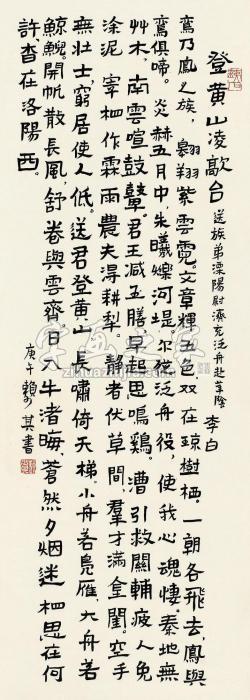 登黄山凌歊台 送族弟溧陽尉濟充泛舟赴華陰 李白
鸞乃鳳之族，翱翔紫雲霓。文章輝五色，双在瓊樹栖。一朝各飛去，鳳與
鸞俱啼。炎赫五月中，朱曦爍河堤。尔從泛舟役，使我心魂悽。秦地無
艸木，南雲喧鼓鼙。君王減五膳，早起思鳴鷄。漕引救關輔，疲人免
涂泥。宰相作霖雨，農夫得耕犁。靜者伏草間，羣才滿金閨。空手
無壯士，窮居使人低。送君登黄山，長嘯倚天梯。小舟若鳧雁，大舟若
鯨鯢。開帆散長風，舒卷與雲齊。日入牛渚晦，蒼然夕烟迷。相思在何
許，杳在洛陽西。
庚午 賴少其書